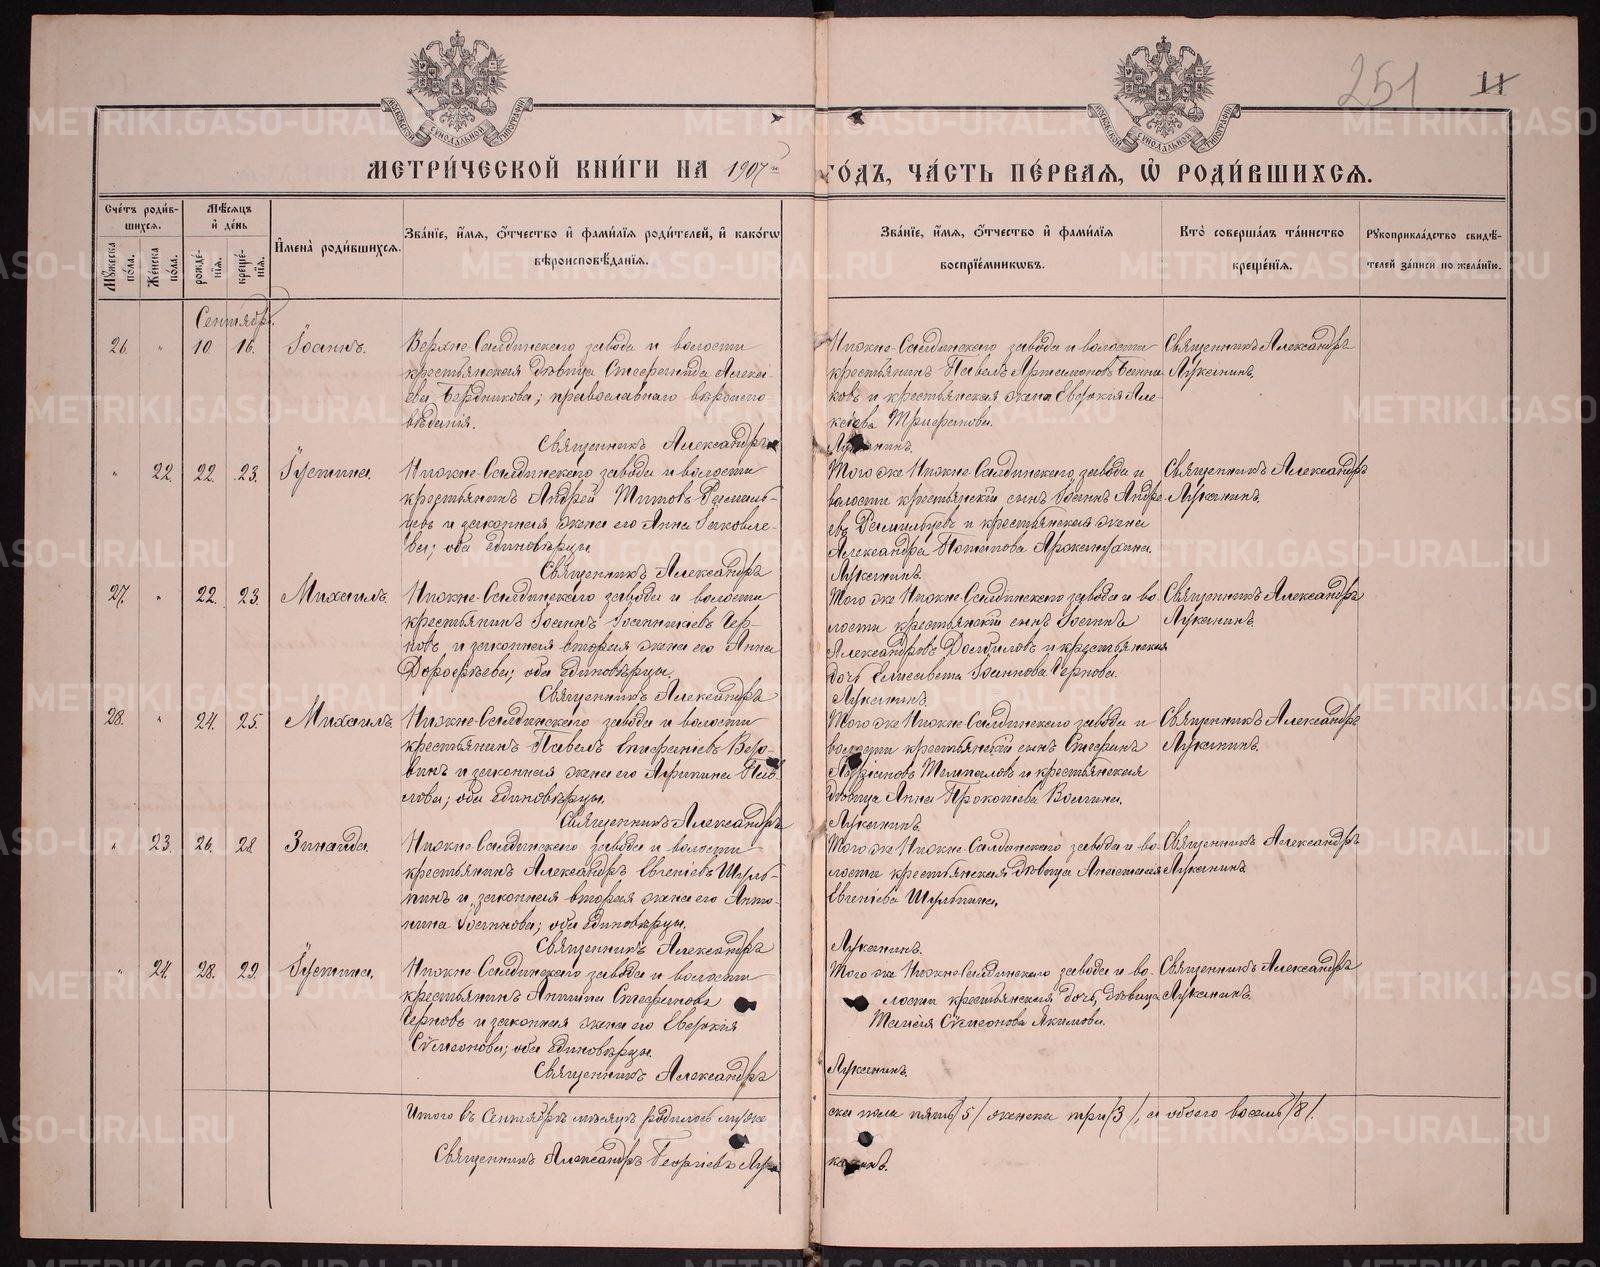 251 11
МЕТРИ́ЧЕСКОЙ КНИ́ГИ НА 1907й ГО́ДЪ, ЧА́СТЬ ПЕ́РВАЯ, Ѽ РОДИ́ВШИХСЯ.
Сче́тъ роди́в-
шихся.
Му́жеска по́ла.
Же́нска по́ла.
Мѣ́сяцъ и де́нь
рожде́-
нія.
креще́-
нія.
Имена̀ роди́вшихся.
Зва́ніе, и́мя, о́тчество и фами́лія роди́телей, и како́гѡ
вѣроисповѣ́данія.
Зва́ніе, и́мя, о́тчество и фами́лія
воспріе́мникѡвъ.
Кто̀ соверша́лъ та́инство
креще́нія.
Рукоприкла́дство свидѣ́-
телей за́писи по жела́нію.
Сентябрь.
26. " 10 16. Іоаннъ.
Верхне-Салдинскаго завода и волости
крестьянская дѣвица Стефанида Алексі-
ева Бердникова; православнаго вѣроиспо-
вѣданія.
Священникъ Александръ
Нижне-Салдинскаго завода и волости
крестьянинъ Павелъ Артамоновъ Банни-
ковъ и крестьянская жена Евдокія Але-
ксіева Трифанова.
Луканинъ.
Священникъ Александръ
Луканинъ.
" 22. 22. 23. Іустина.
Нижне-Салдинскаго завода и волости
крестьянинъ Андрей Титовъ
и законная жена его Анна Іаковле-
ва; оба единовѣрцы.
Священникъ Александръ
Того же Нижне-Салдинскаго завода и
волости крестьянскій сынъ Іоаннъ Андре-
евъ и крестьянская жена
Александра Потапова
Луканинъ.
Священникъ Александръ
Луканинъ.
27. " 22. 23. Михаилъ.
Нижне-Салдинскаго завода и волости
крестьянинъ Іоаннъ Іоанникіевъ Чер-
новъ и законная вторая жена его Анна
Дорофѣева; оба единовѣрцы.
Священникъ Александръ
Того же Нижне-Салдинскаго завода и во-
лости крестьянскій сынъ Іоаннъ
Александровъ Долбиловъ и крестьянская
дочь Елисавета Іоаннова Чернова.
Луканинъ.
Священникъ Александръ
Луканинъ.
28. " 24. 25. Михаилъ.
Нижне-Салдинскаго завода и волости
крестьянинъ Павелъ Епифаніевъ Веро-
винъ и законная жена его Агрипина Пав-
лова; оба единовѣрцы.
Священникъ Александръ
Того же Нижне-Салдинскаго завода и
волости крестьянскій сынъ Стефанъ
и крестьянская
дѣвица Анна Прокопіева Волгина.
Луканинъ.
Священникъ Александръ
Луканинъ.
" 23. 26. 28 Зинаида.
Нижне-Салдинскаго завода и волости
крестьянинъ Александръ Евгеніевъ Шуль-
пинъ и законная вторая жена его Анто-
нина Іоаннова; оба единовѣрцы.
Священникъ Александръ
Того же Нижне-Салдинскаго завода и во-
лости крестьянская дѣвица Анастасія
Евгеніева Шульпина.
Луканинъ.
Священникъ Александръ
Луканинъ.
" 24. 28. 29. Іустина.
Нижне-Салдинскаго завода и волости
крестьянинъ Ананія Стефановъ
Черновъ и законная жена его Евдокія
Сѵмеонова; оба единовѣрцы.
Священникъ Александръ
Того же Нижне-Салдинскаго завода и во-
лости крестьянская дочь, дѣвица
Таисія Сѵмеонова Якимова.
Луканинъ.
Священникъ Александръ
Луканинъ.
Итого въ Сентябрѣ мѣсяцѣ родилось муже-
ска пола пять /5/ женска три /3/, а обоего восемь /8/.
Священникъ Александръ Георгіевъ Лу-
канинъ.
METRIKI.GASO-URAL.RU